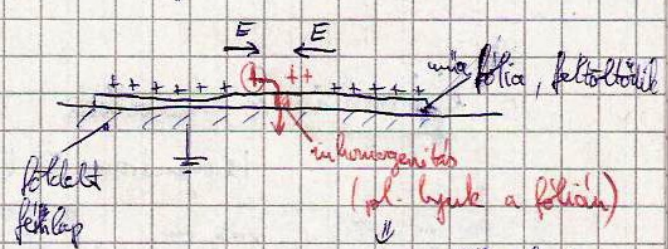 E E
+ + + + + + + + + + + + + +
műa fólia, feltöltődik
inhomogenitás
(pl. lyuk a fólián)
földelt
fémlap
⇓